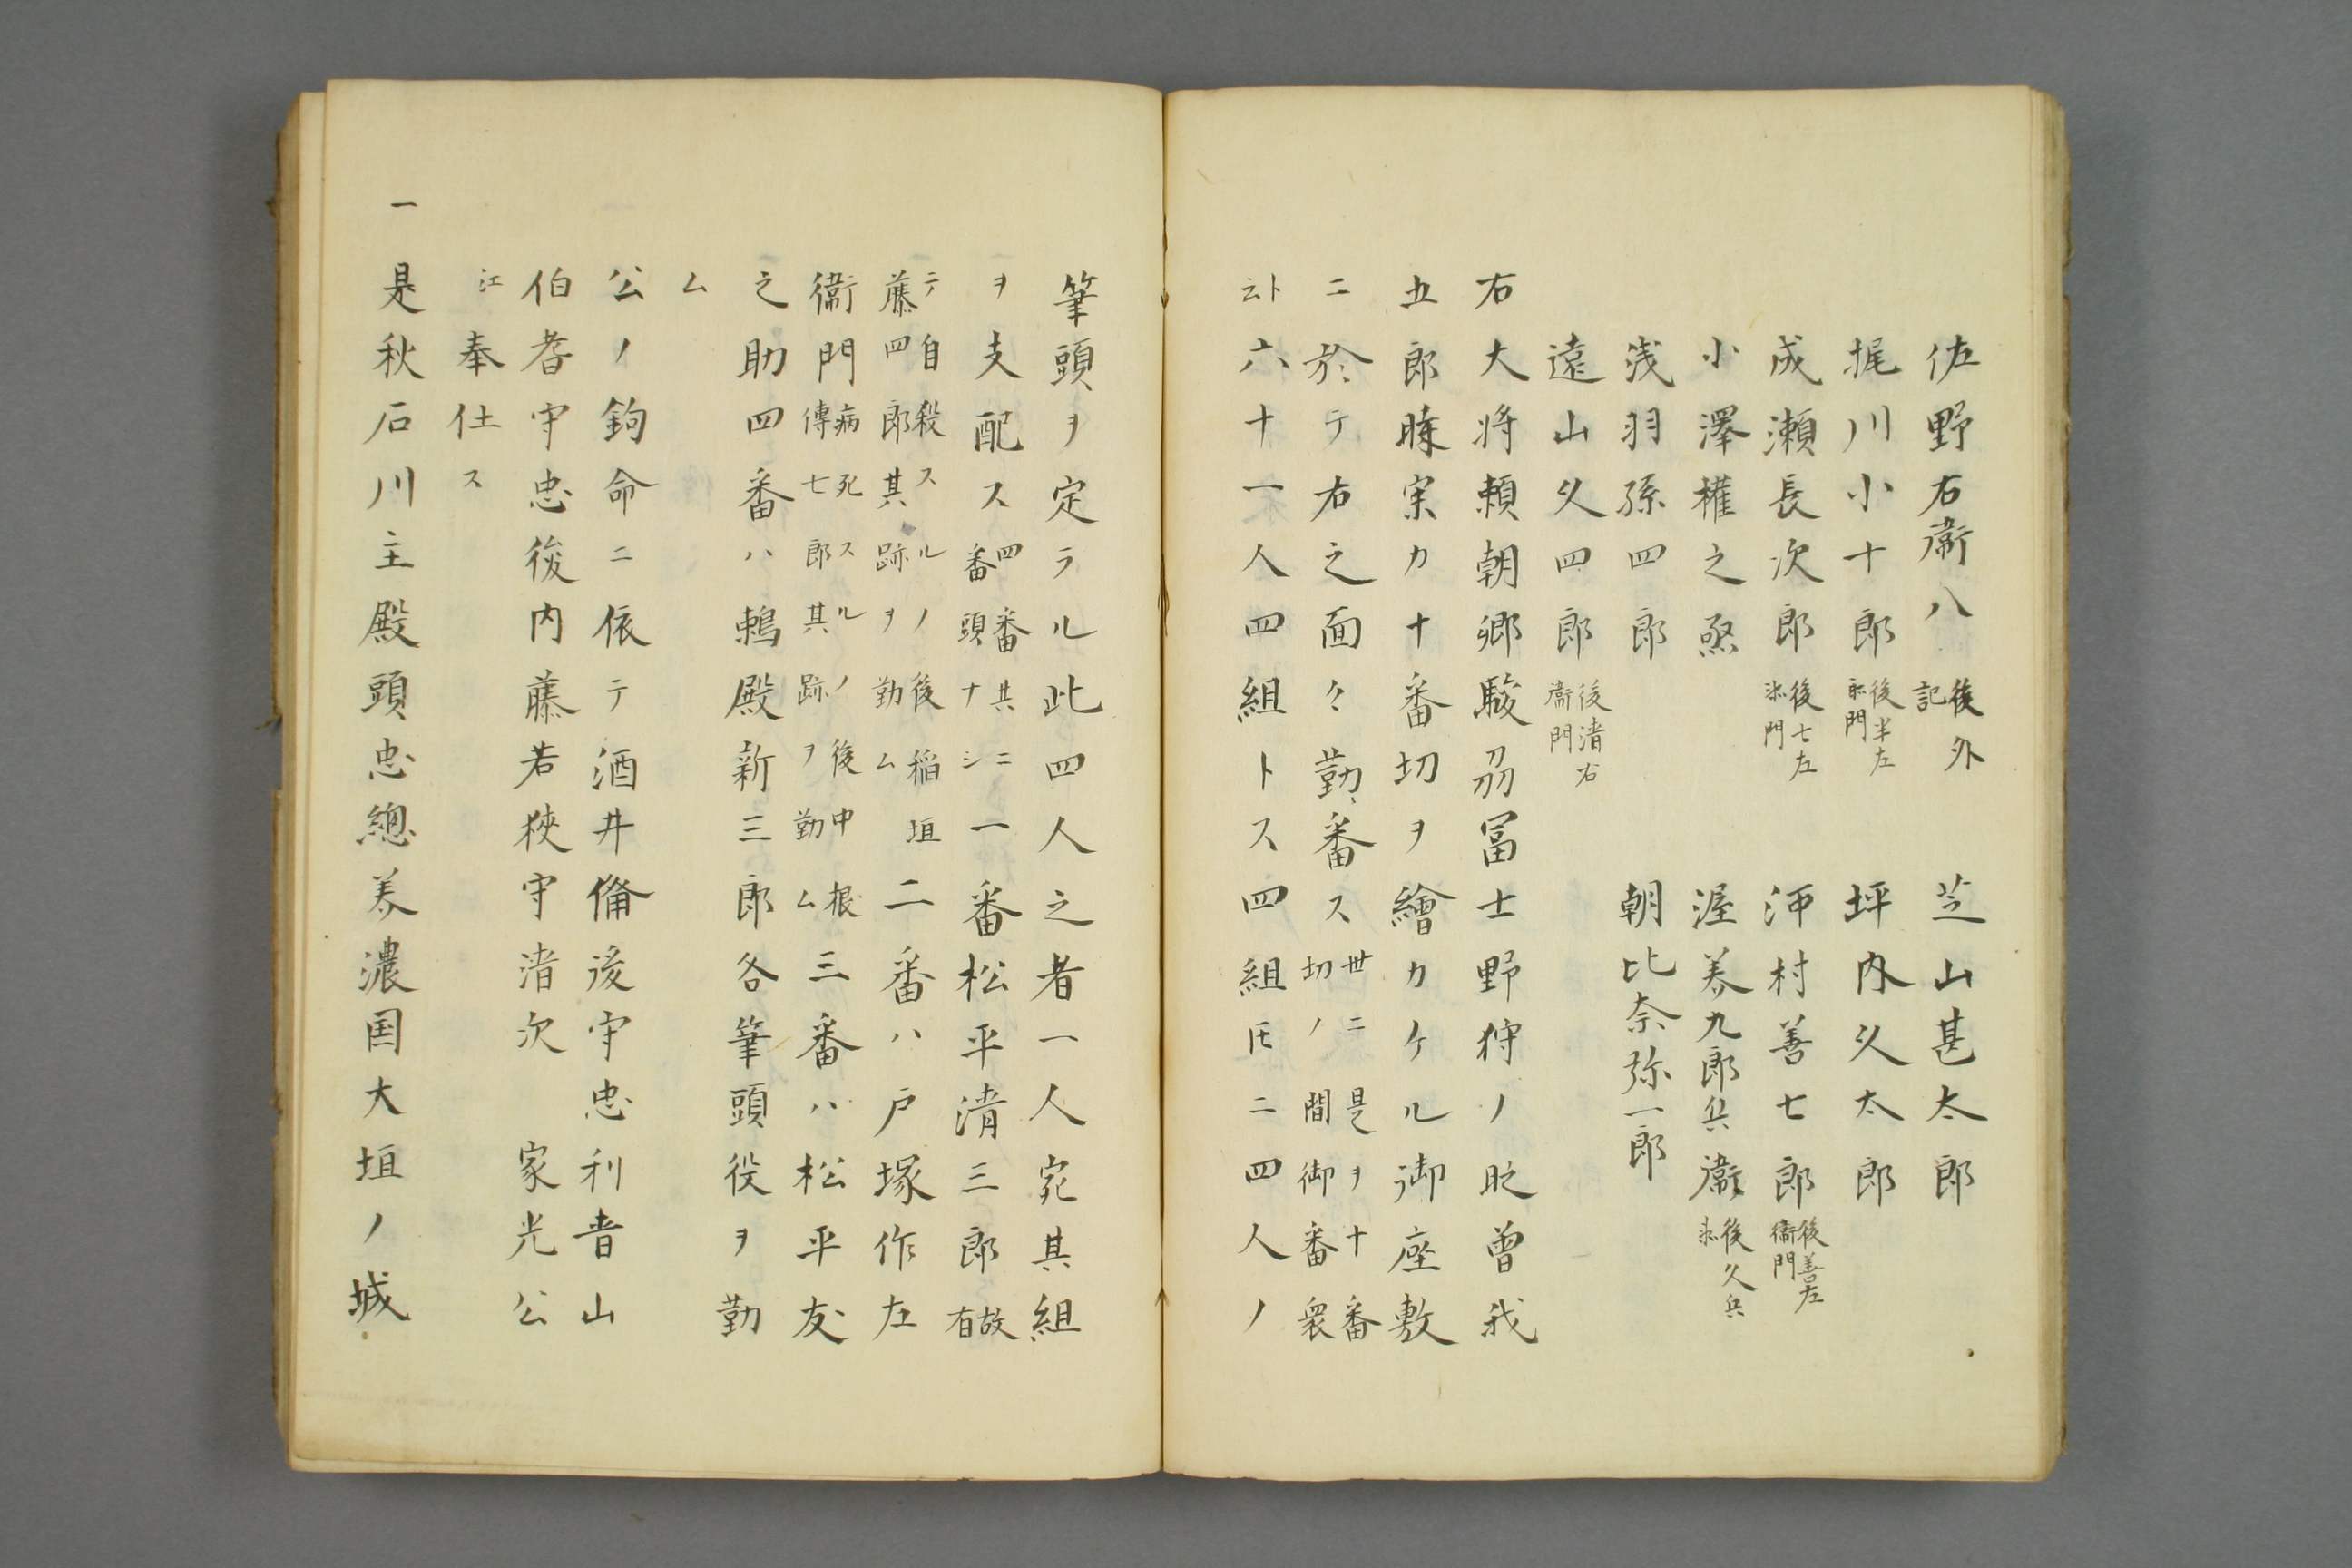 佐野右衛八 後外記 芝山甚太郎
梶川小十郎 後半左衛門 坪内久太郎
成瀬長次郎 後七左衛門 河村善七郎 後善左衛門
小澤權之丞 渥美九郎兵衛 後久兵衛
浅羽孫四郎 朝比奈弥一郎
遠山久四郎 後清右衛門
右大将頼朝卿駿刕冨士野狩ノ時曽我
五郎時宗カ十番切ヲ繪カケル御座敷
ニ於テ右之面々勤番ス 世ニ是ヲ十番切ノ間御番衆
ト云 六十一人四組トス四組𪜈ニ四人ノ
筆頭ヲ定ラル此四人之者一人宛其組
ヲ支配ス 四番共ニ番頭ナシ 一番松平清三郎 故有
テ自殺スルノ後稲垣藤四郎其跡ヲ勤ム 二番ハ戸塚作左
衛門 病死スルノ後中根傳七郎其跡ヲ勤ム 三番ハ松平友
之助四番ハ鵜殿新三郎各筆頭役ヲ勤
ム
公ノ鈞命ニ依テ酒井備後守忠利青山
伯耆守忠俊内藤若狭守清次 家光公
江奉仕ス
一 是秋石川主殿頭忠總美濃国大垣ノ城